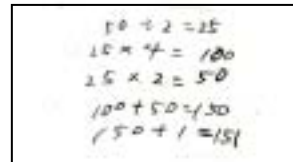 50 ÷ 2 = 25
25 × 4 = 100
25 × 2 = 50
100 + 50 = 150
150 + 1 = 151